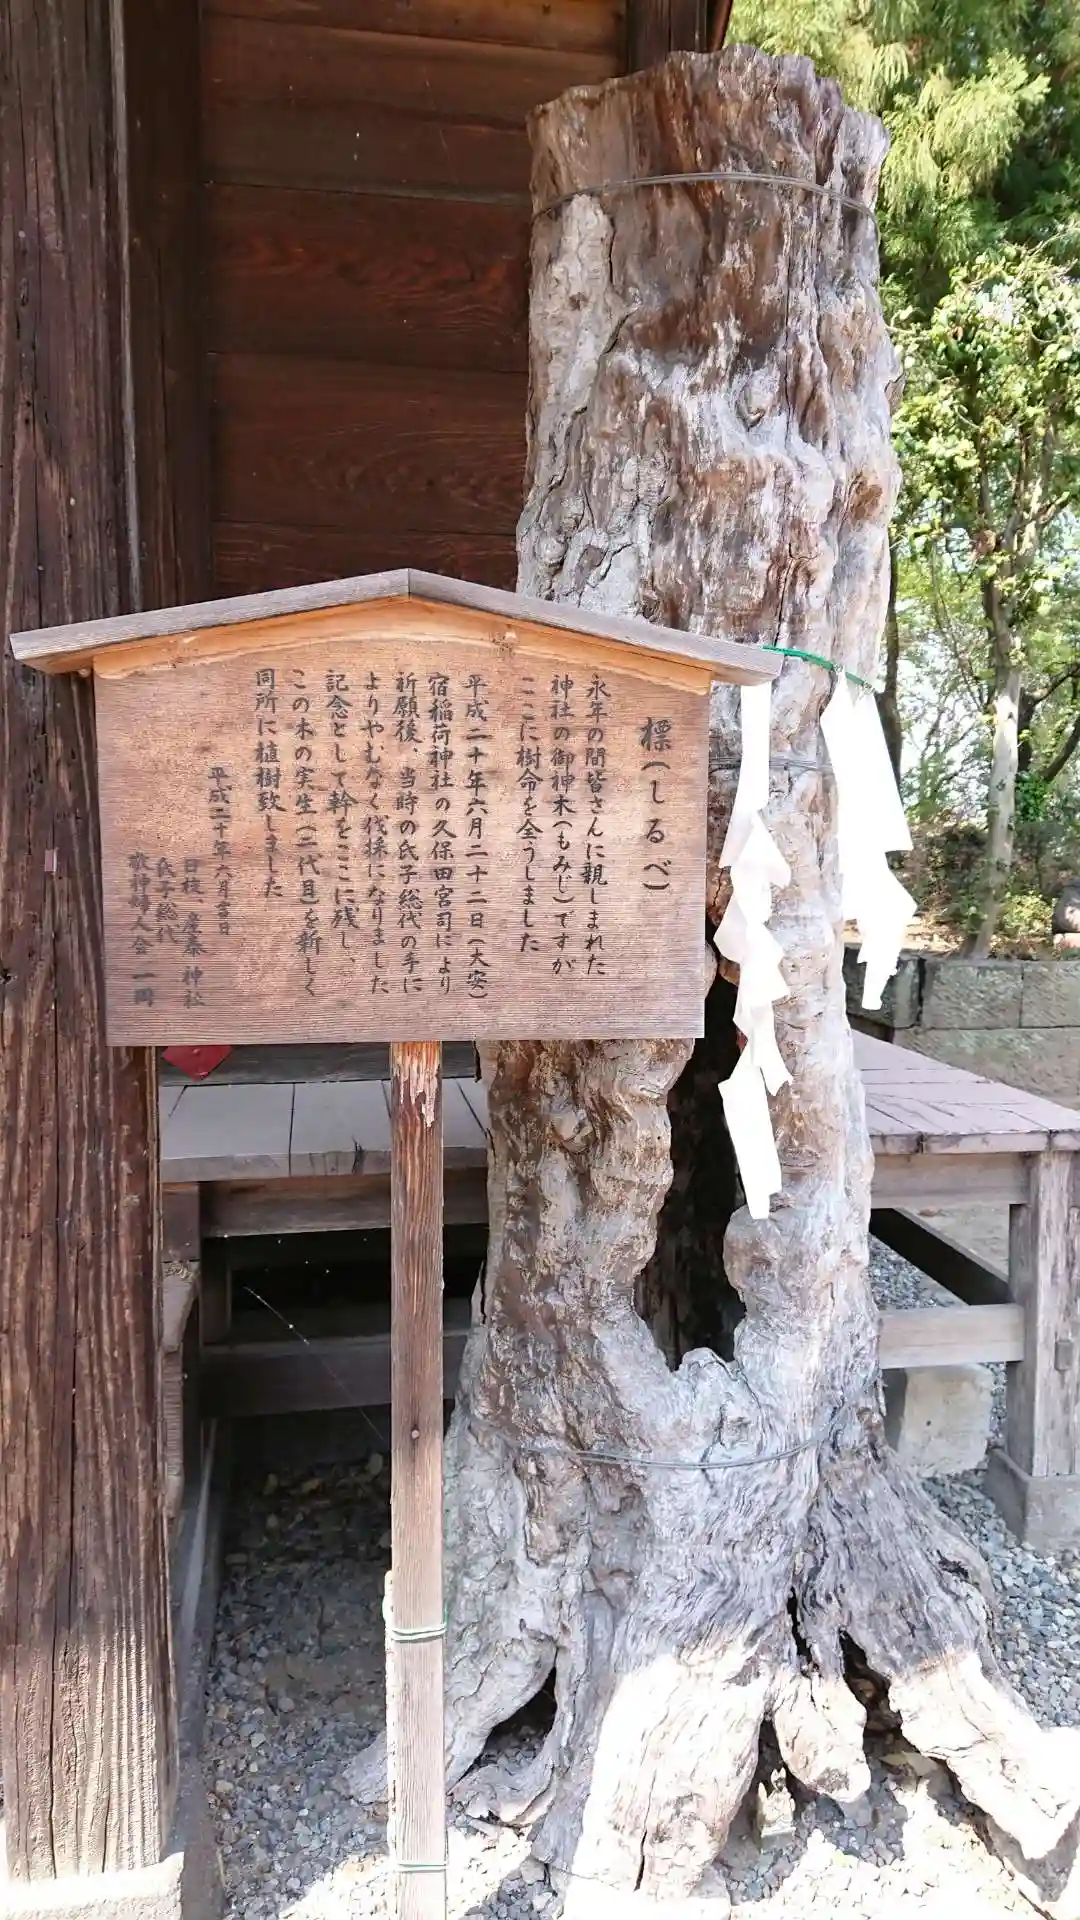 標(しるべ)
永年の間皆さんに親しまれた
神社の御神木(もみじ)ですが
ここに樹命を全うしました
平成二十年六月二十二日(大安)
宿稲荷神社の久保田宮司により
祈願後、当時の氏子総代の手に
よりやむなく伐採になりました
記念として幹をここに残し、
この木の実生(二代目)を新しく
同所に植樹致しました
平成二十年六月吉日
日枝、産泰神社
氏子総代
敬神婦人会一同